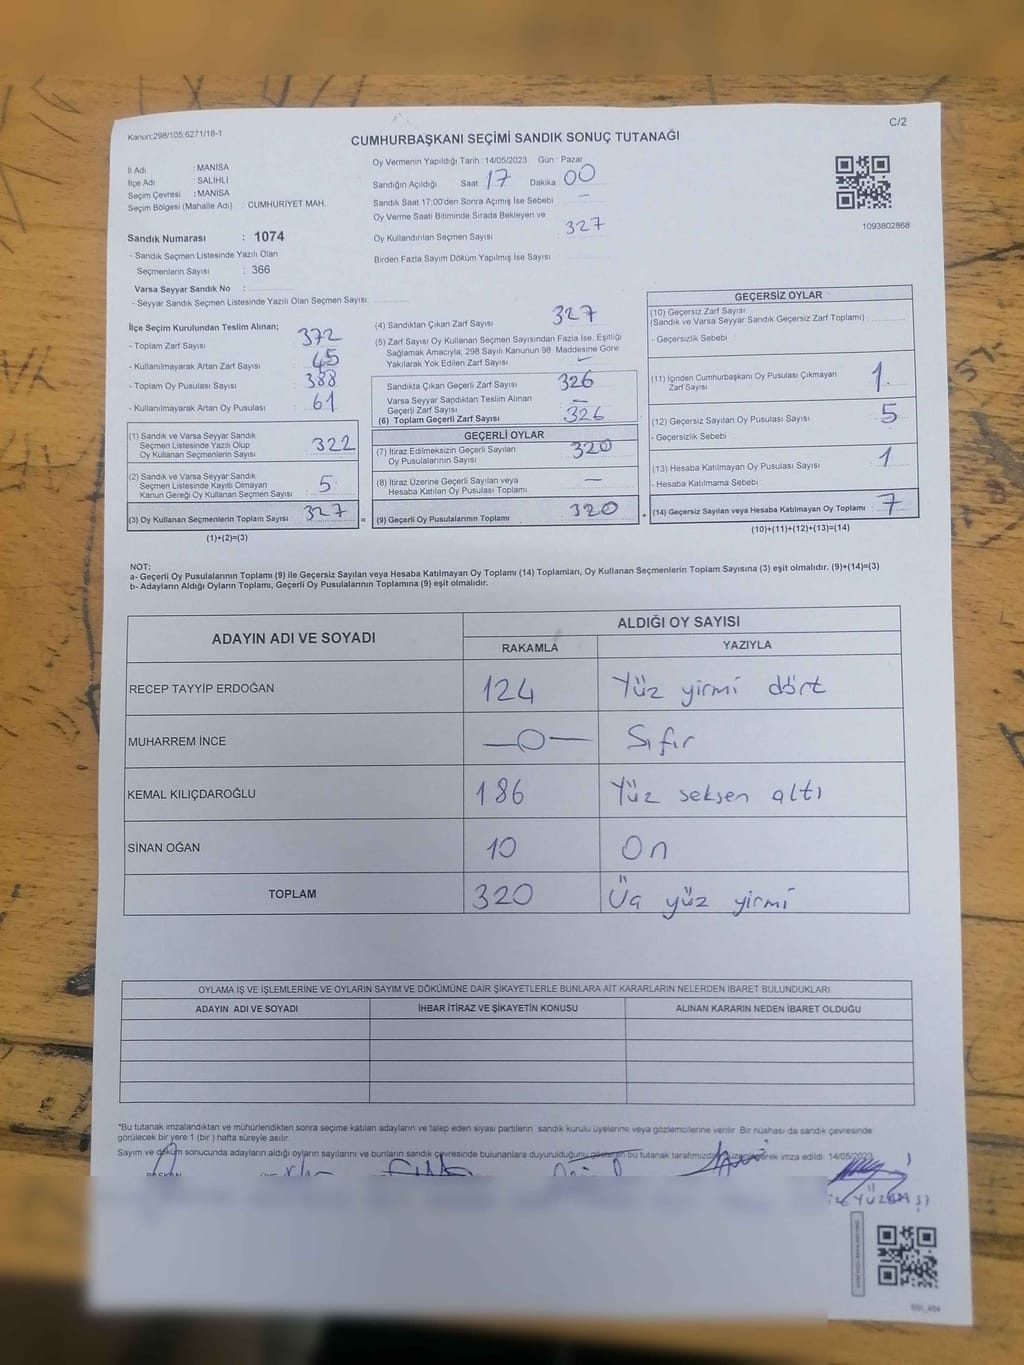 Kanun:298/105,6271/18-1
C/2
CUMHURBAŞKANI SEÇİMİ SANDIK SONUÇ TUTANAĞI
İl Adı : MANİSA
İlçe Adı : SALİHLİ
Seçim Çevresi : MANİSA
Seçim Bölgesi (Mahalle Adı) : CUMHURİYET MAH.
Sandık Numarası : 1074
- Sandık Seçmen Listesinde Yazılı Olan
Seçmenlerin Sayısı : 366
Varsa Seyyar Sandık No :
- Seyyar Sandık Seçmen Listesinde Yazılı Olan Seçmen Sayısı:
Oy Vermenin Yapıldığı Tarih : 14/05/2023 Gün : Pazar
Sandığın Açıldığı Saat 17 Dakika 00
Sandık Saat 17:00'den Sonra Açılmış İse Sebebi : —
Oy Verme Saati Bitiminde Sırada Bekleyen ve
Oy Kullandırılan Seçmen Sayısı 327
Birden Fazla Sayım Döküm Yapılmış İse Sayısı
1093802868
İlçe Seçim Kurulundan Teslim Alınan;
- Toplam Zarf Sayısı : 372
- Kullanılmayarak Artan Zarf Sayısı : 45
- Toplam Oy Pusulası Sayısı : 388
- Kullanılmayarak Artan Oy Pusulası : 61
(1) Sandık ve Varsa Seyyar Sandık
Seçmen Listesinde Yazılı Olup
Oy Kullanan Seçmenlerin Sayısı : 322
(2) Sandık ve Varsa Seyyar Sandık
Seçmen Listesinde Kayıtlı Olmayan
Kanun Gereği Oy Kullanan Seçmen Sayısı : 5
(3) Oy Kullanan Seçmenlerin Toplam Sayısı : 327
(1)+(2)=(3)
=
(4) Sandıktan Çıkan Zarf Sayısı : 327
(5) Zarf Sayısı Oy Kullanan Seçmen Sayısından Fazla İse, Eşitliği
Sağlamak Amacıyla; 298 Sayılı Kanunun 98. Maddesine Göre
Yakılarak Yok Edilen Zarf Sayısı : —
Sandıkta Çıkan Geçerli Zarf Sayısı : 326
Varsa Seyyar Sandıktan Teslim Alınan
Geçerli Zarf Sayısı : —
(6) Toplam Geçerli Zarf Sayısı : 326
GEÇERLİ OYLAR
(7) İtiraz Edilmeksizin Geçerli Sayılan
Oy Pusulalarının Sayısı : 320
(8) İtiraz Üzerine Geçerli Sayılan veya
Hesaba Katılan Oy Pusulası Toplamı : —
(9) Geçerli Oy Pusulalarının Toplamı : 320
+
GEÇERSİZ OYLAR
(10) Geçersiz Zarf Sayısı
(Sandık ve Varsa Seyyar Sandık Geçersiz Zarf Toplamı) :
- Geçersizlik Sebebi :
(11) İçinden Cumhurbaşkanı Oy Pusulası Çıkmayan
Zarf Sayısı : 1.
(12) Geçersiz Sayılan Oy Pusulası Sayısı : 5
- Geçersizlik Sebebi :
(13) Hesaba Katılmayan Oy Pusulası Sayısı : 1
- Hesaba Katılmama Sebebi :
(14) Geçersiz Sayılan veya Hesaba Katılmayan Oy Toplamı : 7
(10)+(11)+(12)+(13)=(14)
NOT:
a- Geçerli Oy Pusulalarının Toplamı (9) ile Geçersiz Sayılan veya Hesaba Katılmayan Oy Toplamı (14) Toplamları, Oy Kullanan Seçmenlerin Toplam Sayısına (3) eşit olmalıdır. (9)+(14)=(3)
b- Adayların Aldığı Oyların Toplamı, Geçerli Oy Pusulalarının Toplamına (9) eşit olmalıdır.
ADAYIN ADI VE SOYADI
ALDIĞI OY SAYISI
RAKAMLA YAZIYLA
RECEP TAYYİP ERDOĞAN 124 Yüz yirmi dört
MUHARREM İNCE —0— Sıfır
KEMAL KILIÇDAROĞLU 186 Yüz seksen altı
SİNAN OĞAN 10 On
TOPLAM 320 Üç yüz yirmi
OYLAMA İŞ VE İŞLEMLERİNE VE OYLARIN SAYIM VE DÖKÜMÜNE DAİR ŞİKAYETLERLE BUNLARA AİT KARARLARIN NELERDEN İBARET BULUNDUKLARI
ADAYIN ADI VE SOYADI İHBAR İTİRAZ VE ŞİKAYETİN KONUSU ALINAN KARARIN NEDEN İBARET OLDUĞU
*Bu tutanak imzalandıktan ve mühürlendikten sonra seçime katılan adayların ve talep eden siyasi partilerin sandık kurulu üyelerine veya gözlemcilerine verilir. Bir nüshası da sandık çevresinde
görülecek bir yere 1 (bir) hafta süreyle asılır.
Sayım ve döküm sonucunda adayların aldığı oyların sayılarını ve bunların sandık çevresinde bulunanlara duyurulduğunu gösteren bu tutanak tarafımızdan düzenlenerek imza edildi. 14/05/2023